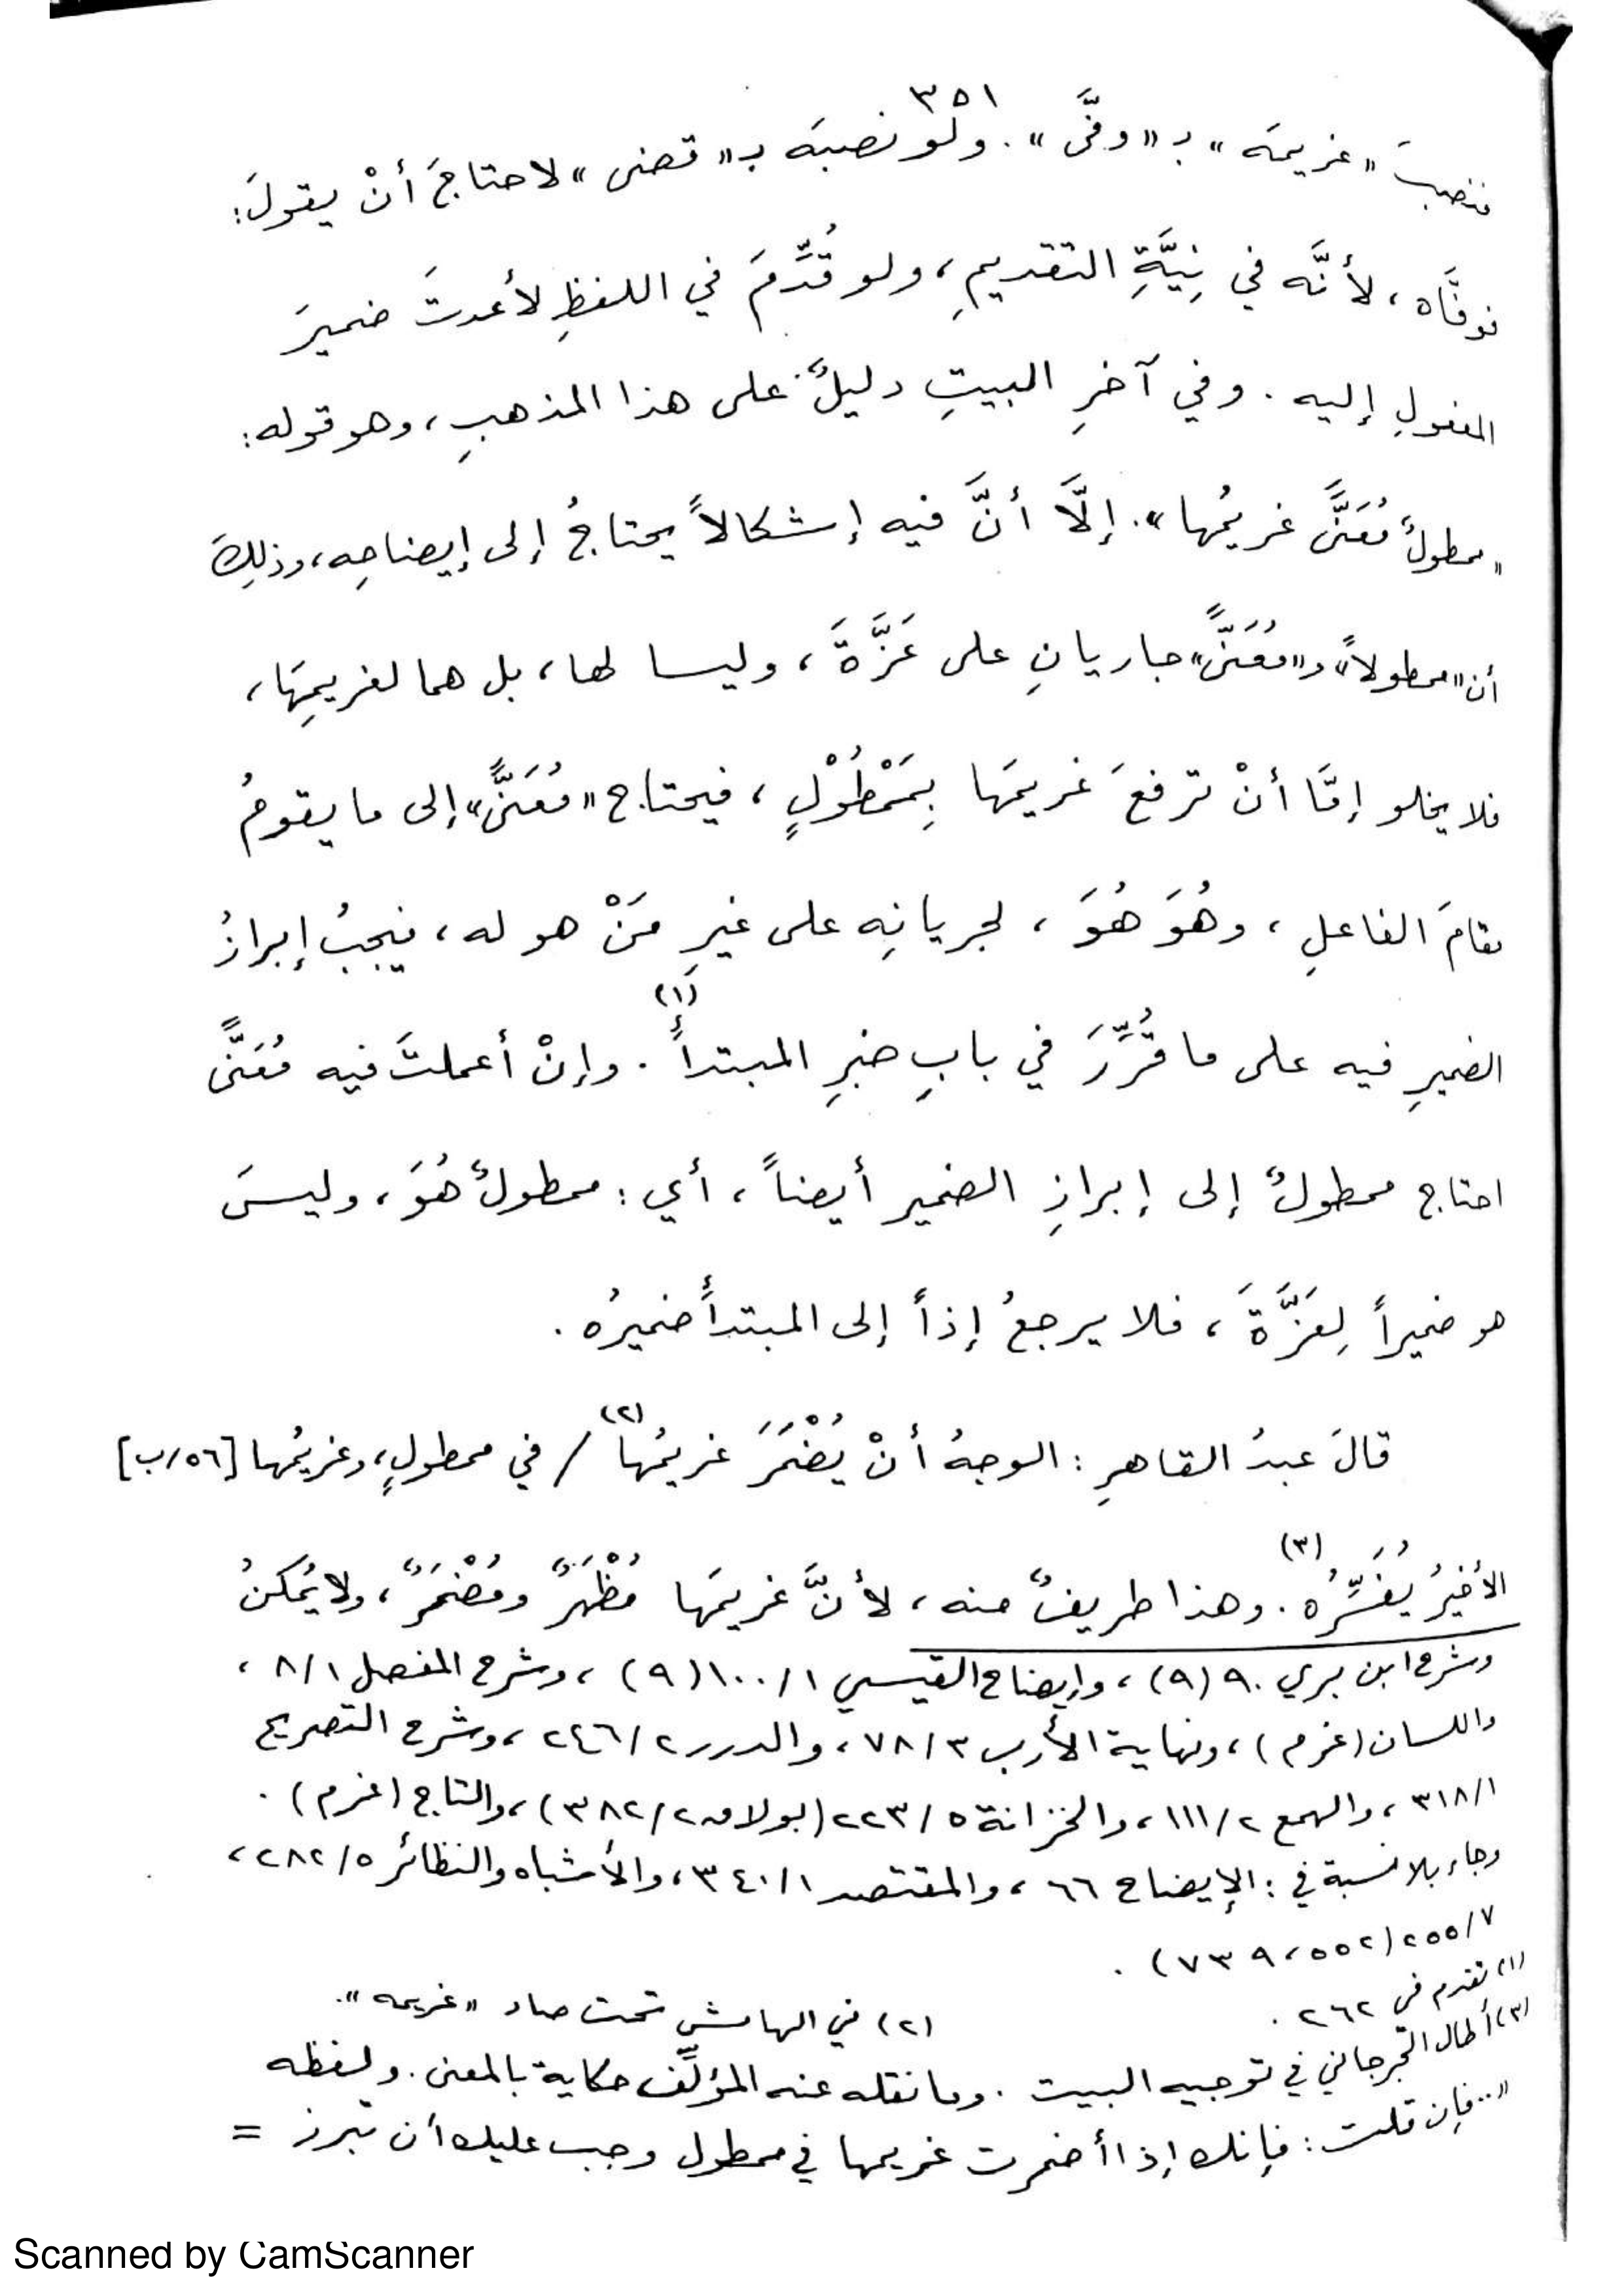 ٣٥١
فنصبَ «غريمَه» بـ «وفَّى». ولو نصبَه بـ «قضى» لاحتاجَ أنْ يقولَ:
فوفَّاه، لأنَّه في نِيَّةِ التقديمِ، ولو قُدِّمَ في اللفظِ لأعدتَ ضميرَ
المفعولِ إليه. وفي آخرِ البيتِ دليلٌ على هذا المذهبِ، وهو قوله:
«ممطولٌ مُعَنًّى غريمُها». إلَّا أنَّ فيه إشكالاً يحتاجُ إلى إيضاحِه، وذلِكَ
أن «ممطولاً» و«مُعَنًّى» جاريانِ على عَزَّةَ، وليسا لها، بل هما لغريمِهَا،
فلا يخلو إمَّا أنْ ترفعَ غريمَها بِمَمْطُوْلٍ، فيحتاج «مُعَنًّى» إلى ما يقومُ
مقامَ الفاعلِ، وهُوَ هُوَ، لجريانِه على غيرِ مَنْ هو له، فيجبُ إبرازُ
الضميرِ فيه على ما قُرِّرَ في بابِ خبرِ المبتدأِ (١). وإنْ أعملتَ فيه مُعَنًّى
احتاج ممطولٌ إلى إبرازِ الضمير أيضاً، أي: ممطولٌ هُوَ، وليسَ
هو ضميراً لِعَزَّةَ، فلا يرجعُ إذاً إلى المبتدأ ضميرُه.
قالَ عبدُ القاهرِ: الوجهُ أنْ يُضْمَرَ غريمُها (٢) / في ممطولٍ، وغريمُها [٥٦/ب]
الأخيرُ يُفَسِّرُه (٣). وهذا طريفٌ منه، لأنَّ غريمَها مُظْهَرٌ ومُضْمَرٌ، ولا يُمكنُ
وشرح ابن بري ٩٠ (٩)، وإيضاح القيسي ١/١٠٠ (٩)، وشرح المفصل ٨/١،
واللسان (غرم)، ونهاية الأرب ٧٨/٣، والدرر ٢٤٦/٢، وشرح التصريح
٣١٨/١، والهمع ١١١/٢، والخزانة ٢٢٣/٥ (بولاق ٣٨٢/٢)، والتاج (غرم).
وجاء بلا نسبة في: الإيضاح ٦٦، والمقتصد ٣٤٠/١، والأشباه والنظائر ٢٨٢/٥،
٢٥٥/٧ (٥٥٢، ٧٣٩).
(١) تقدم في ٢٦٢. (٢) في الهامش تحت صاد «غريمه».
(٣) أطال الجرجاني في توجيه البيت. وما نقله عنه المؤلِّف حكاية بالمعنى. ولفظه
«... فإن قلت: فإنك إذا أضمرت غريمها في ممطول وجب عليك أن تبرز =
Scanned by CamScanner